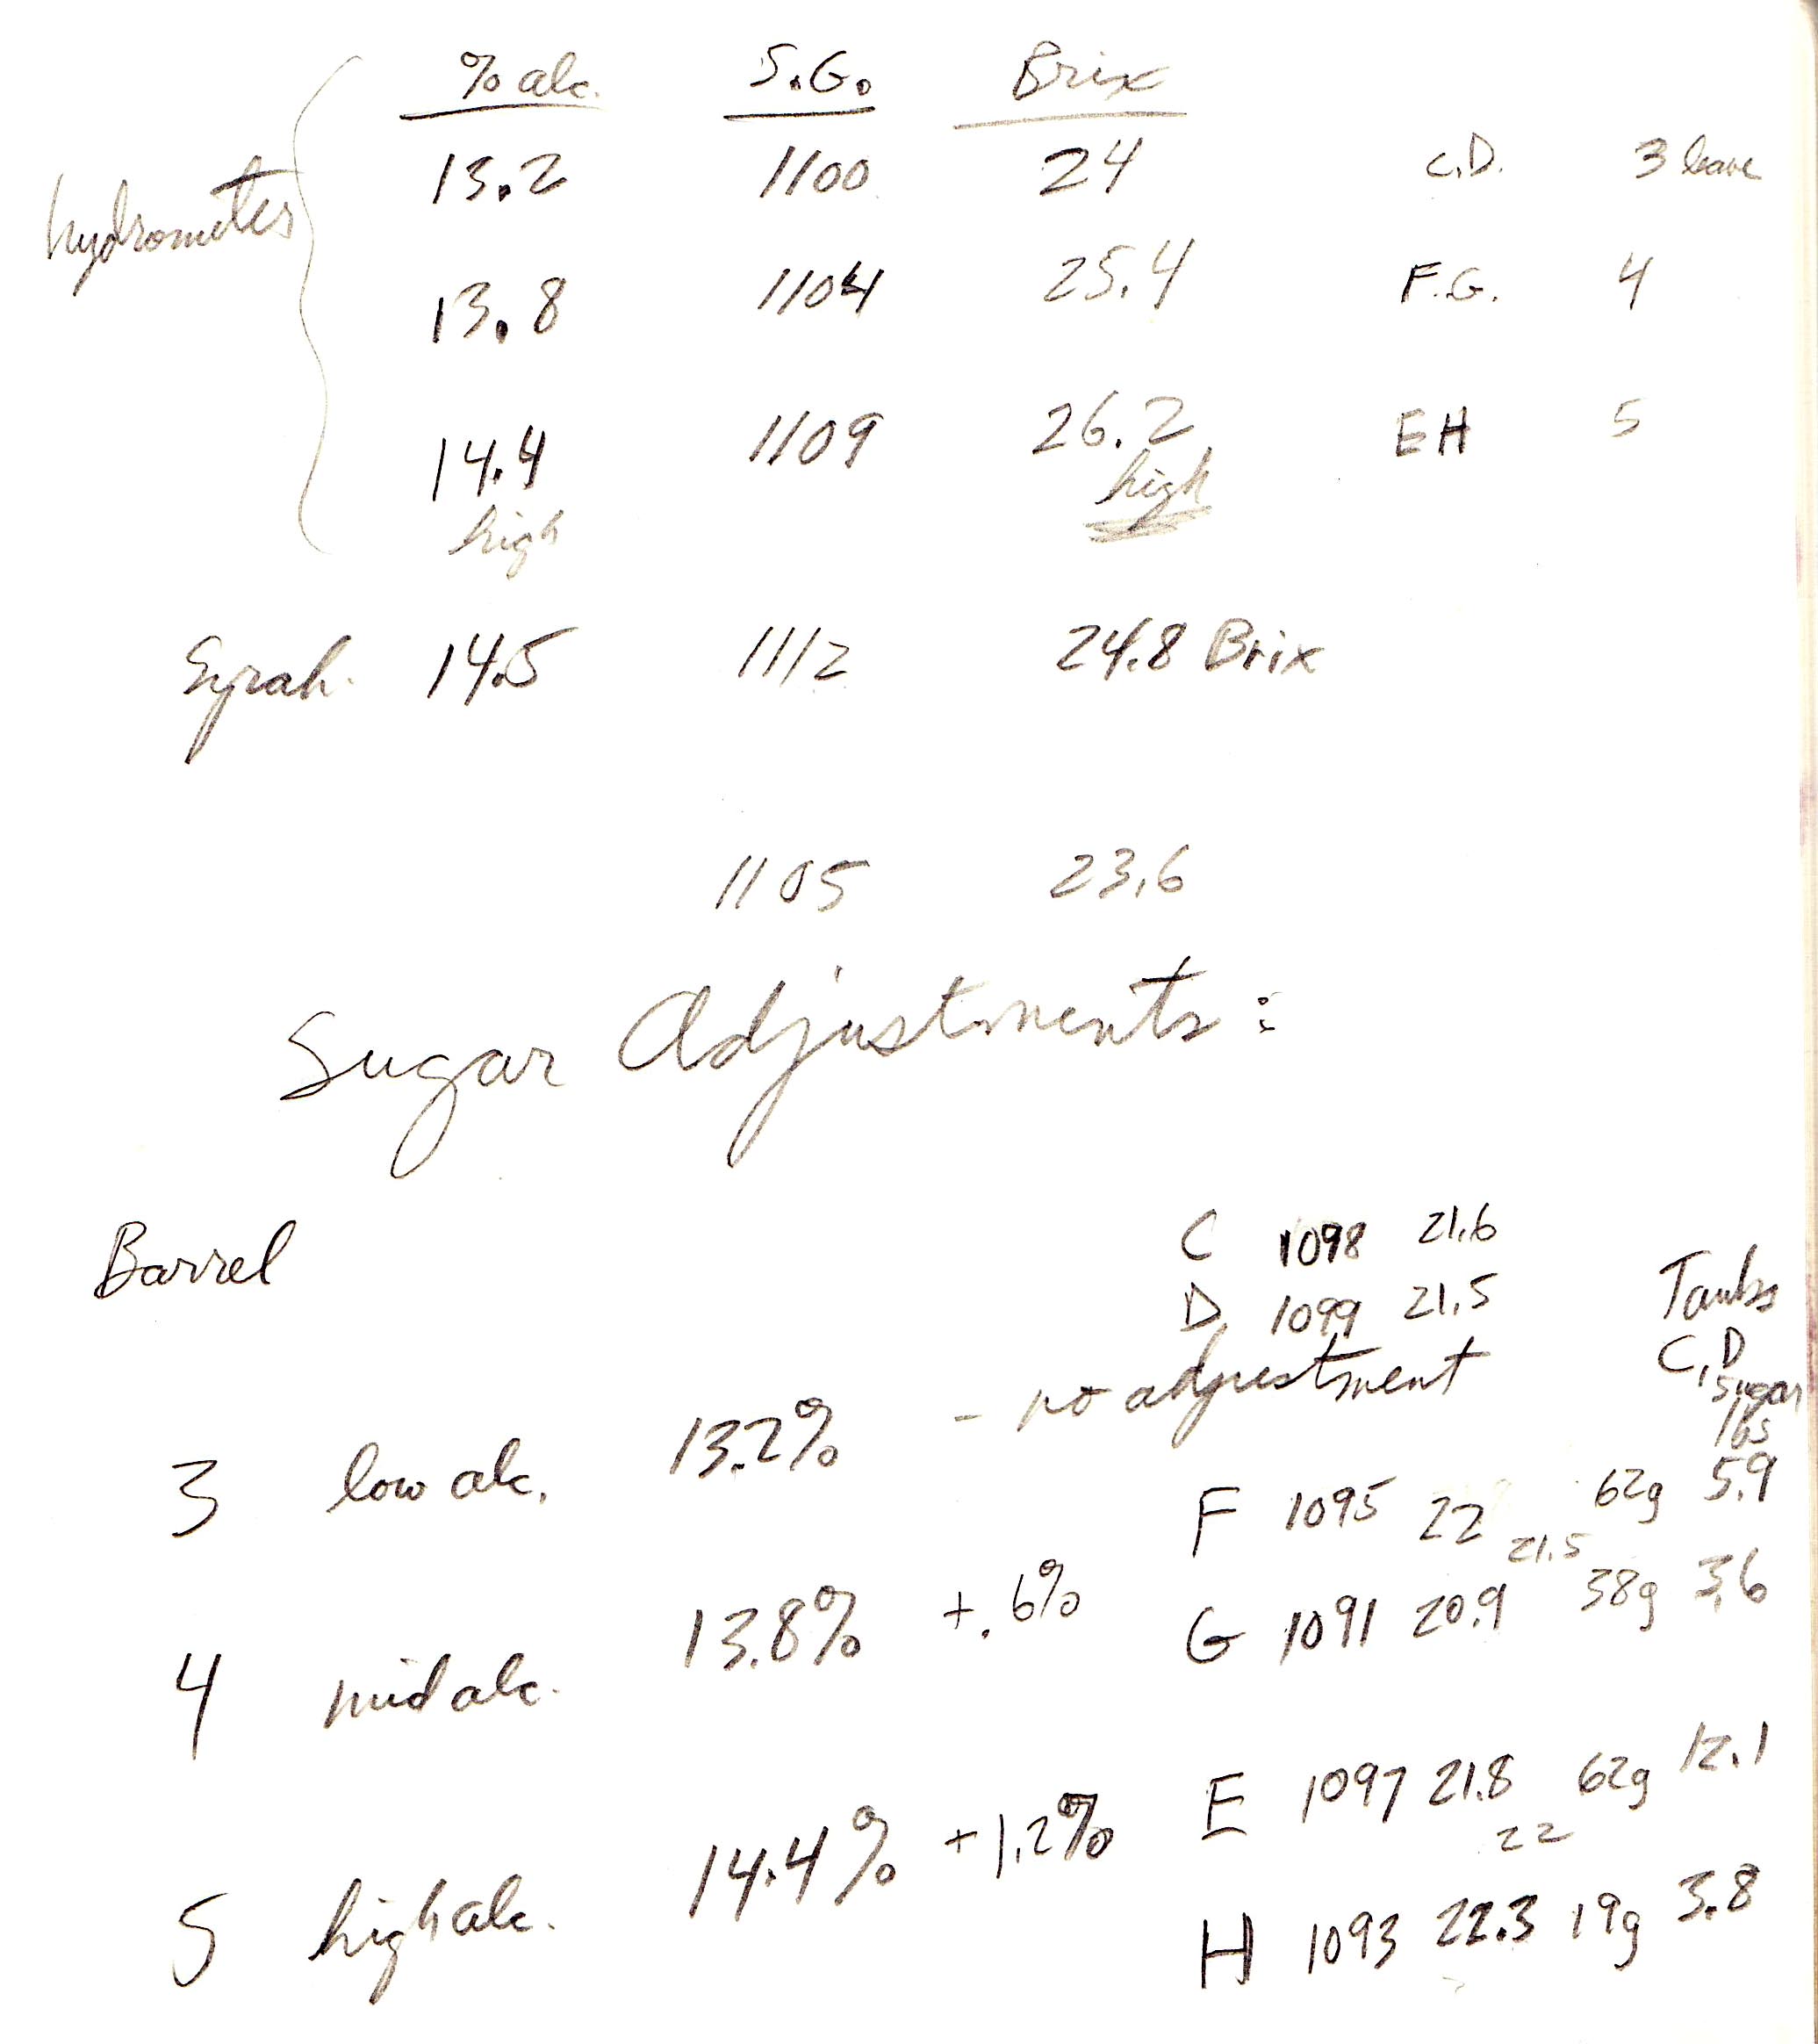 % alc. S.G. Brix
hydrometer 13.2 1100 24 C.D. 3 leave
13.8 1104 25.4 F.G. 4
14.4 1109 26.2 EH 5
high high
Syrah. 14.5 1112 24.8 Brix
1105 23.6
Sugar Adjustments:
Barrel
C 1098 21.6
D 1099 21.5
C,D
sugar
lbs
3 low alc. 13.2% - no adjustment
F 1095 22 62g 5.9
21.5
4 mid alc. 13.8% +.6% G 1091 20.9 38g 3.6
E 1097 21.8 62g 12.1
22
5 high alc. 14.4% +1.2% H 1093 22.3 19g 3.8